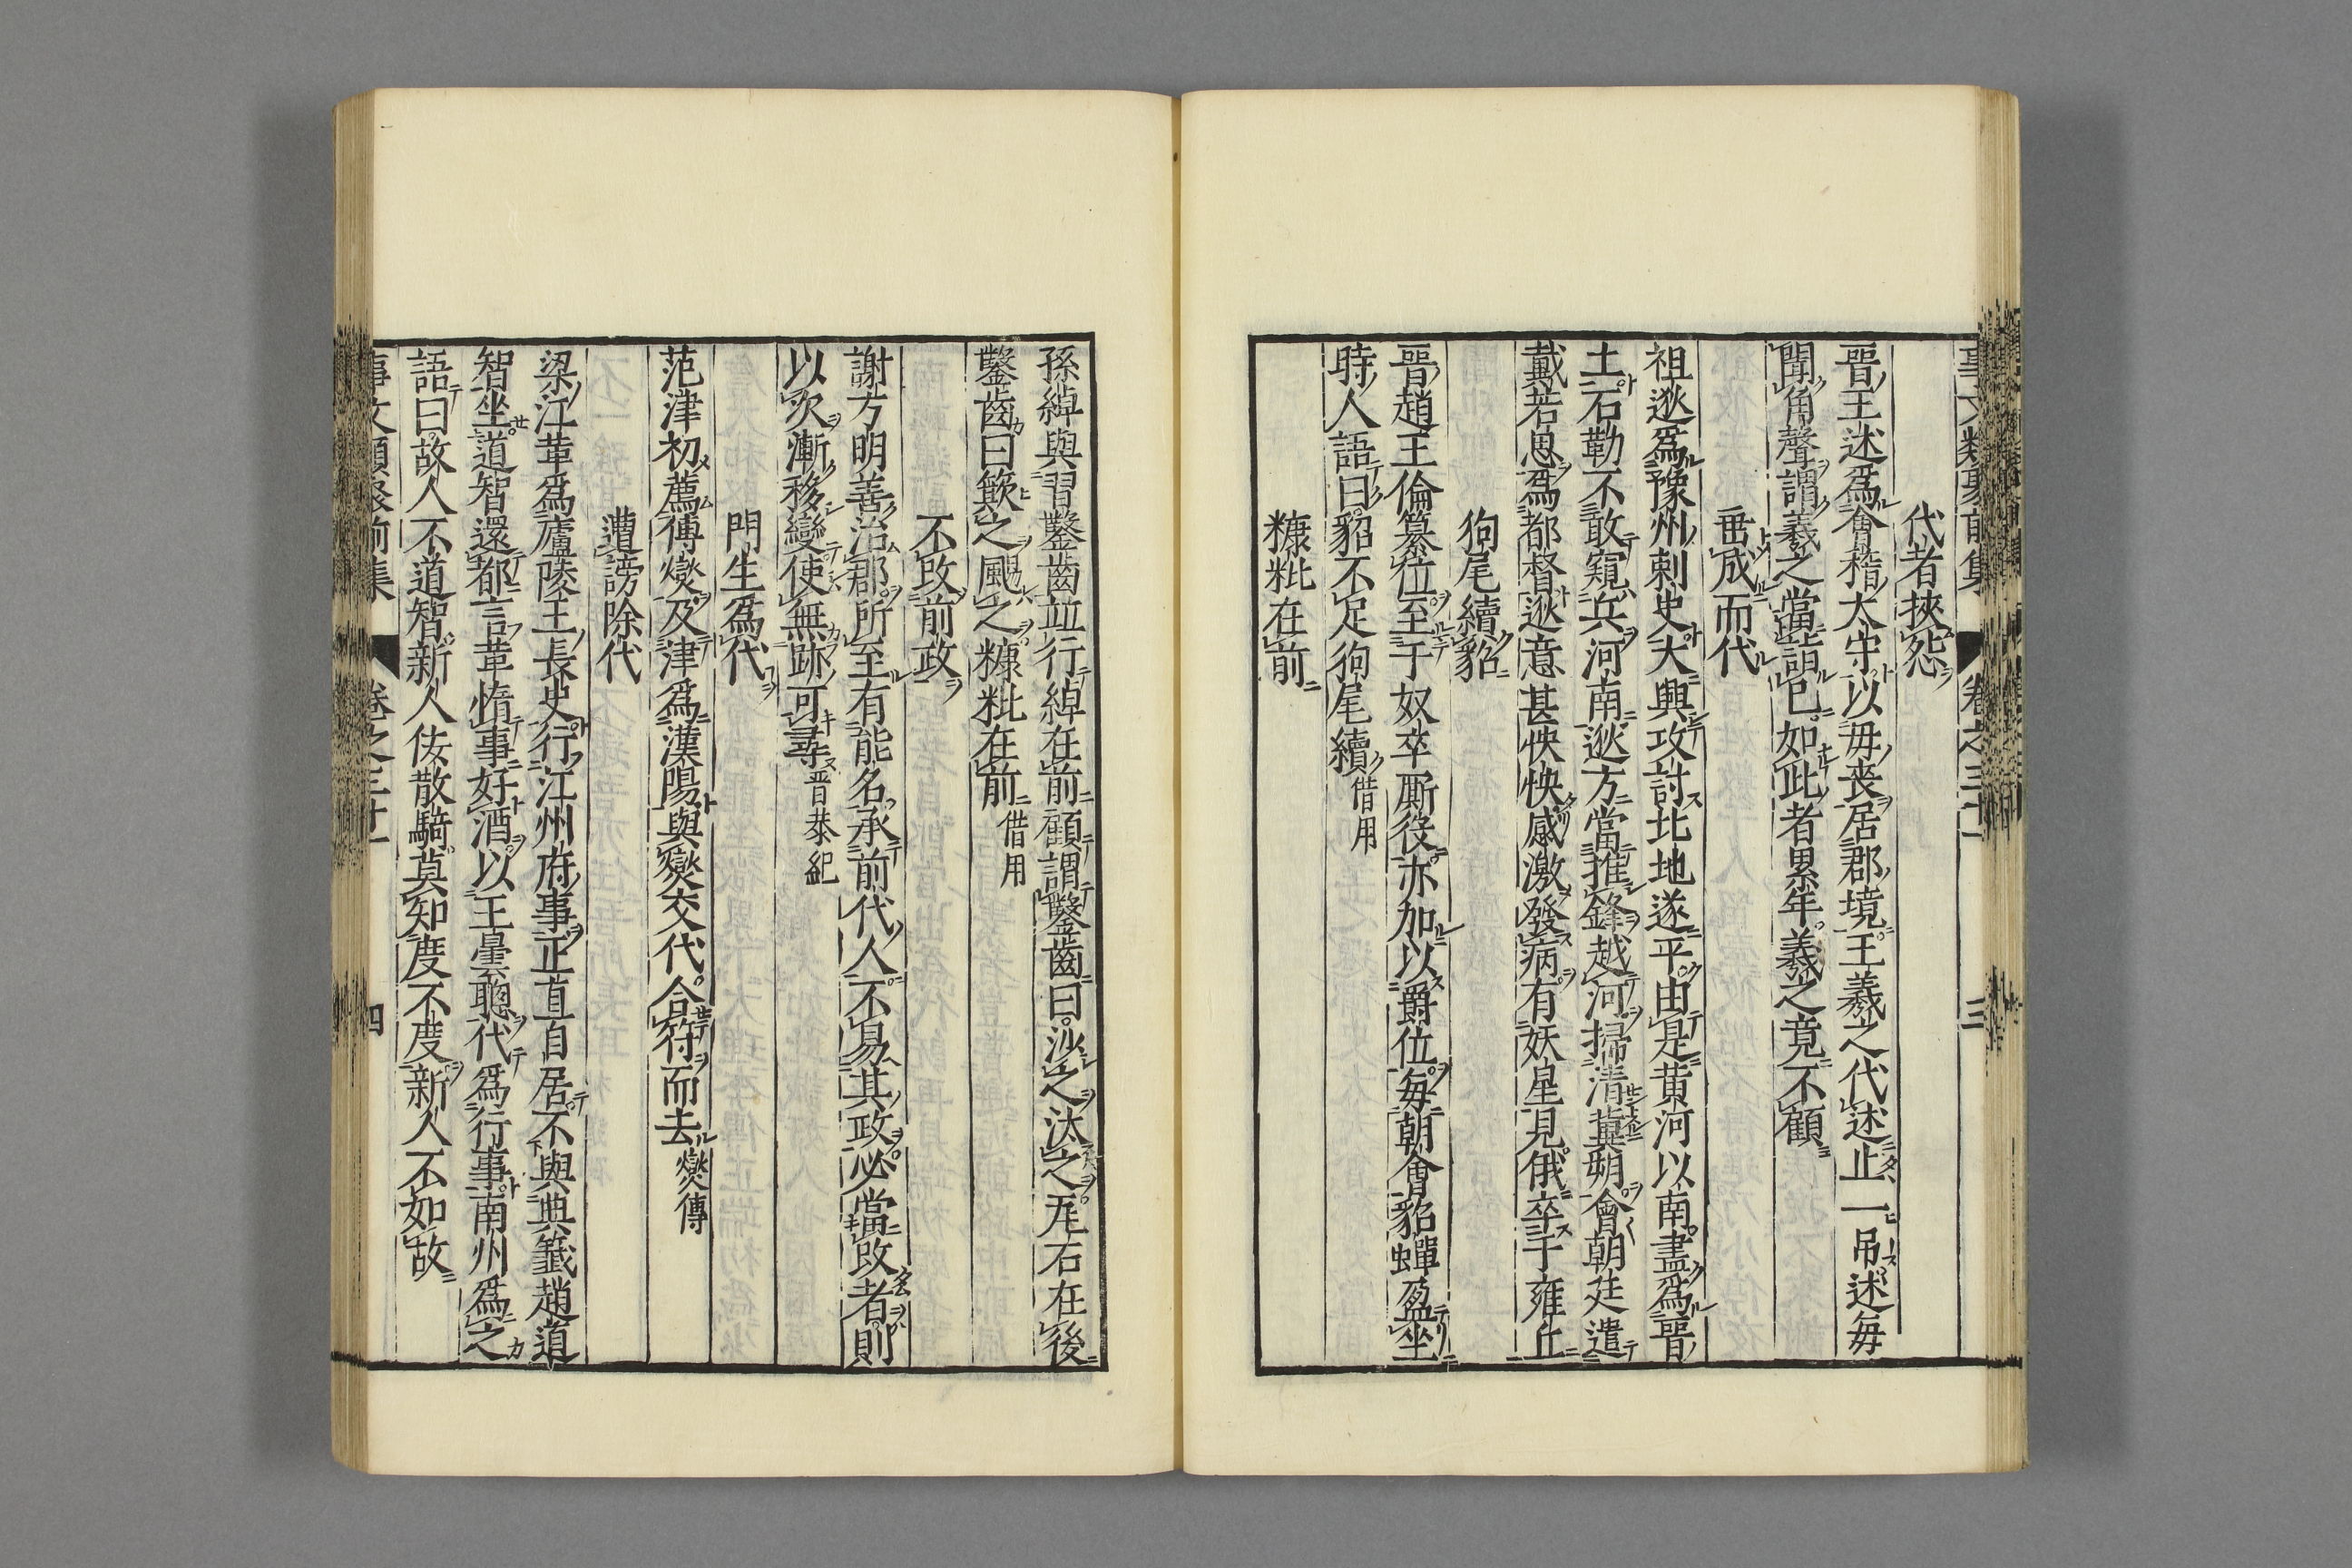 代者挾怨
晋王述爲會稽太守以毋丧居郡境王羲之代述止一吊述毎
聞角聲謂羲之當詣已如此者累年羲之竟不顧
垂成而代
祖逖爲豫州刺史大興攻討北地遂平由是黄河以南盡爲晋
土石勒不敢窺兵河南逖方當推鋒越河掃清冀朔會朝廷遣
戴若思爲都督逖意甚怏怏感激發病有妖星見俄卒于雍丘
狗尾續貂
晋趙王倫簒位至于奴卒厮役亦加以爵位毎朝會貂蟬盈坐
時人語曰貂不足狗尾續借用
糠粃在前
孫綽與習鑿齒並行綽在前顧謂鑿齒曰沙之汰之瓦石在後
鑿齒曰簸之颺之糠粃在前借用
不改前政
謝方明善治郡所至有能名承前代人不易其政必當改者則
以次漸移變使無跡可尋晋恭紀
門生爲代
范津初薦傅爕及津爲漢陽與爕交代合符而去爕傳
遭謗除代
梁江革爲廬陵王長史行江州府事正直自居不與典籤趙道
智坐道智還都言革惰事好酒以王曇聰代爲行事南州爲之
語曰故人不道智新人佞散騎莫知度不度新人不如故
事文類聚前集 卷之三十一 四